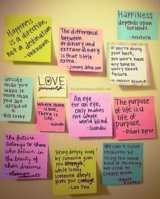 Happiness
is a direction,
not a
destination
The difference
between
ordinary and
extraordinary
is that little
extra.
- Jimmy Johnson
HAPPINESS
depends on
ourselves
If you're doing
your best,
you won't have
any time
to worry
about failure.
decide
what you
want it
more than
you are
afraid of
Bill Cosby
LOVE
yourself
Where there
is love,
there is
life.
An eye
for an eye,
only makes
the whole
world blind.
-Gandhi
The purpose
of life is a
life of
purpose.
- Robert Byrne
The future
belongs to
those who
believe in
the beauty
of their
dreams
Being deeply loved
by someone
gives you
strength,
while loving
someone deeply
gives you courage
Lao Tzu
We can't solve
problems by
using the same
kind of
thinking we
used when we
created
them.